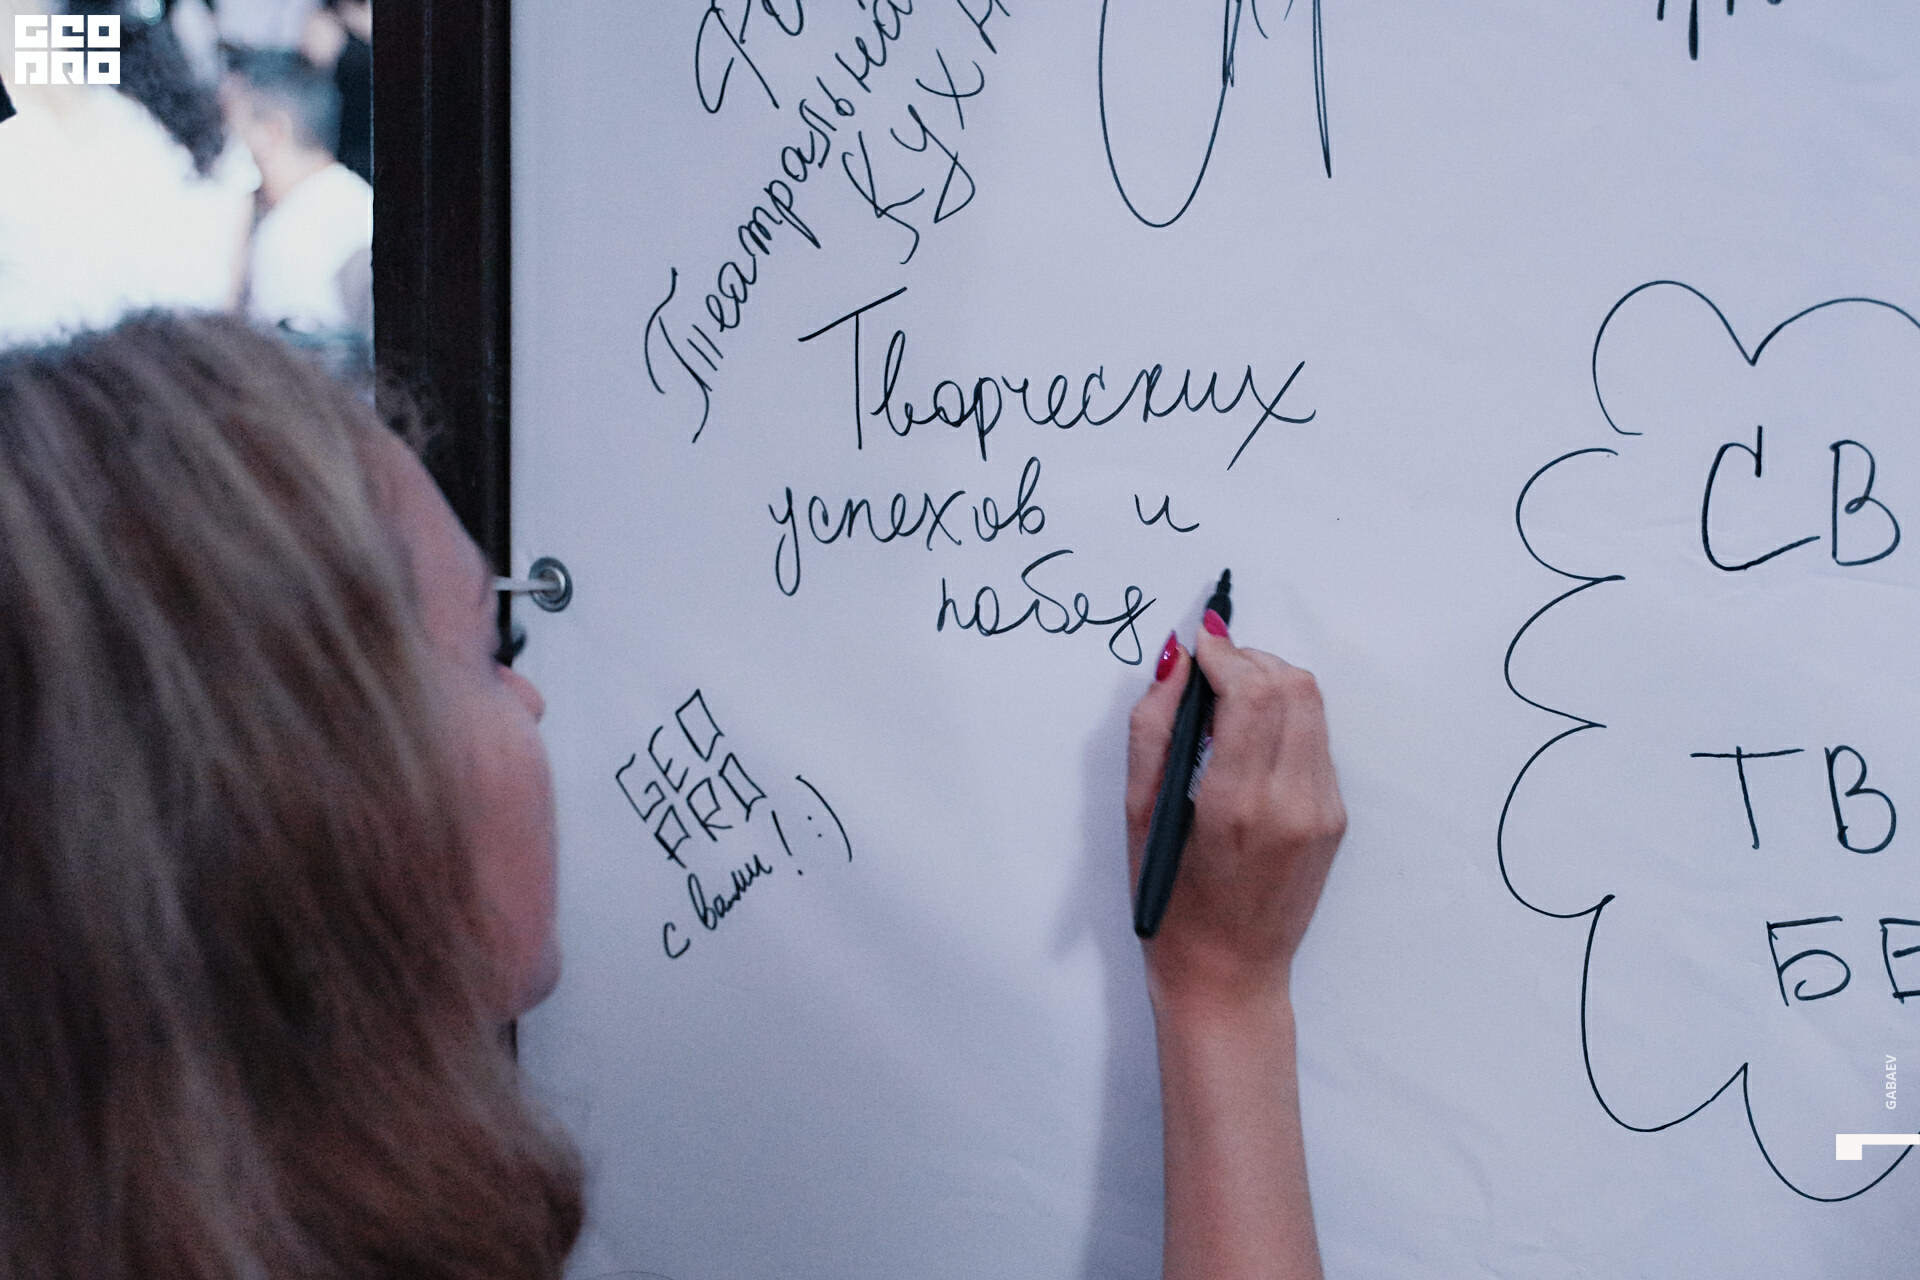 GEO
PRO
Театральная
кухня
Творческих
успехов и
побед
GEO
PRO
с вами! :)
СВ
ТВ
БЕ
GABAEV